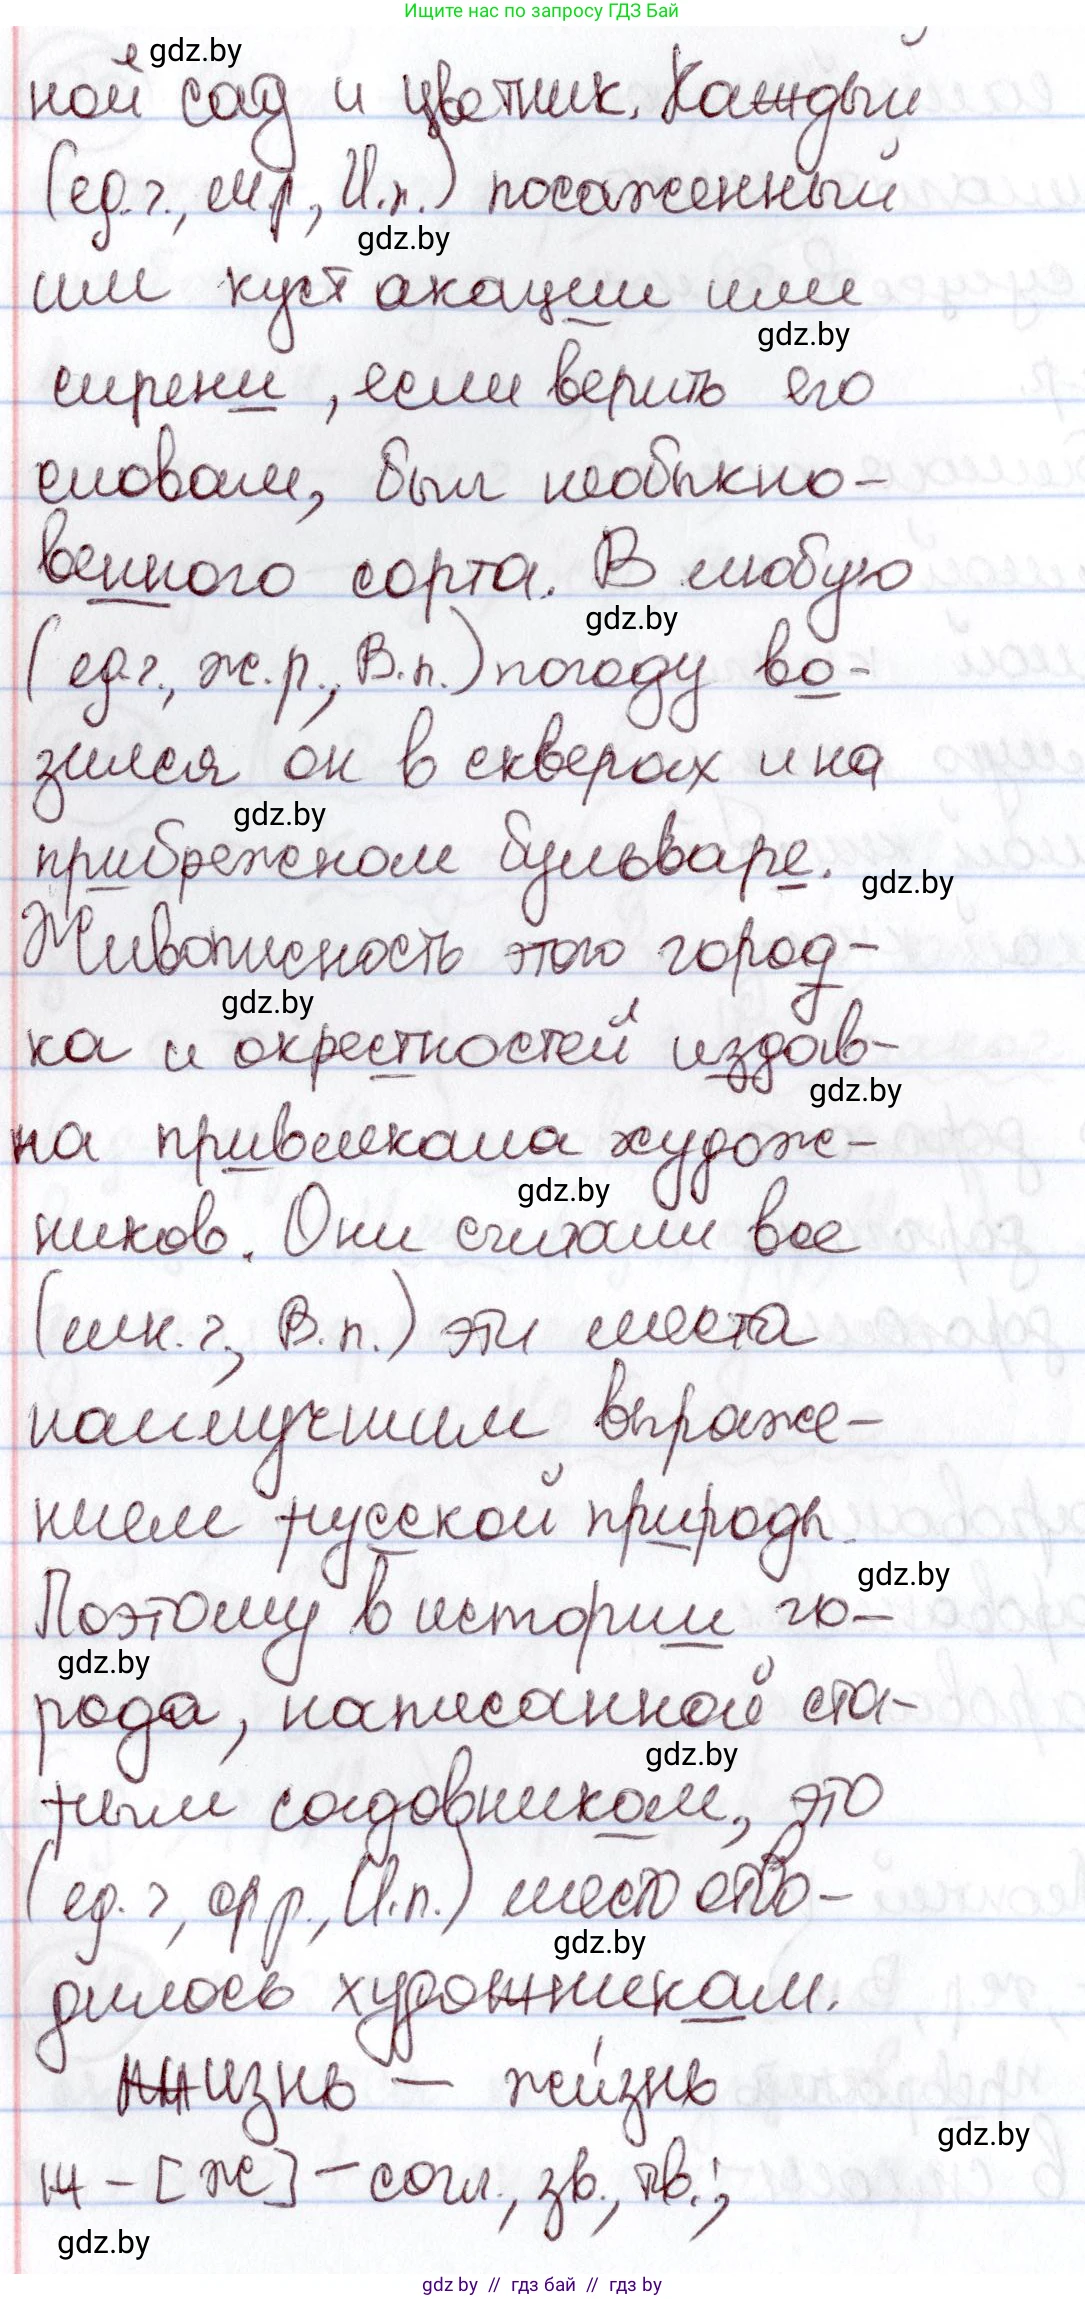 Ищите нас по запросу ГДЗ Бай
gdz.by
ной сад и цветник. Каждый
(ед.ч., м.р., И.п.) посаженный
gdz.by
им куст акации или
gdz.by
сирени, если верить его
словам, был необыкно-
венного сорта. В любую
gdz.by
(ед.ч., ж.р., В.п.) погоду во-
зился он в скверах и на
gdz.by
прибрежном бульваре.
gdz.by
Живописность этого город-
gdz.by
ка и окрестностей издав-
gdz.by
на привлекала худож-
gdz.by
ников. Они считали все
(мн.ч., В.п.) эти места
наилучшим выраже-
нием русской природы.
gdz.by
Поэтому в истории го-
gdz.by
рода, написанной ста-
gdz.by
рым садовником, это
(ед.ч., ср.р., И.п.) место отво-
gdz.by
дилось художникам.
Жизнь – жи́знь
gdz.by
ж – [ж] – согл., зв., тв.;
gdz.by
gdz by // гдз бай // гдз by